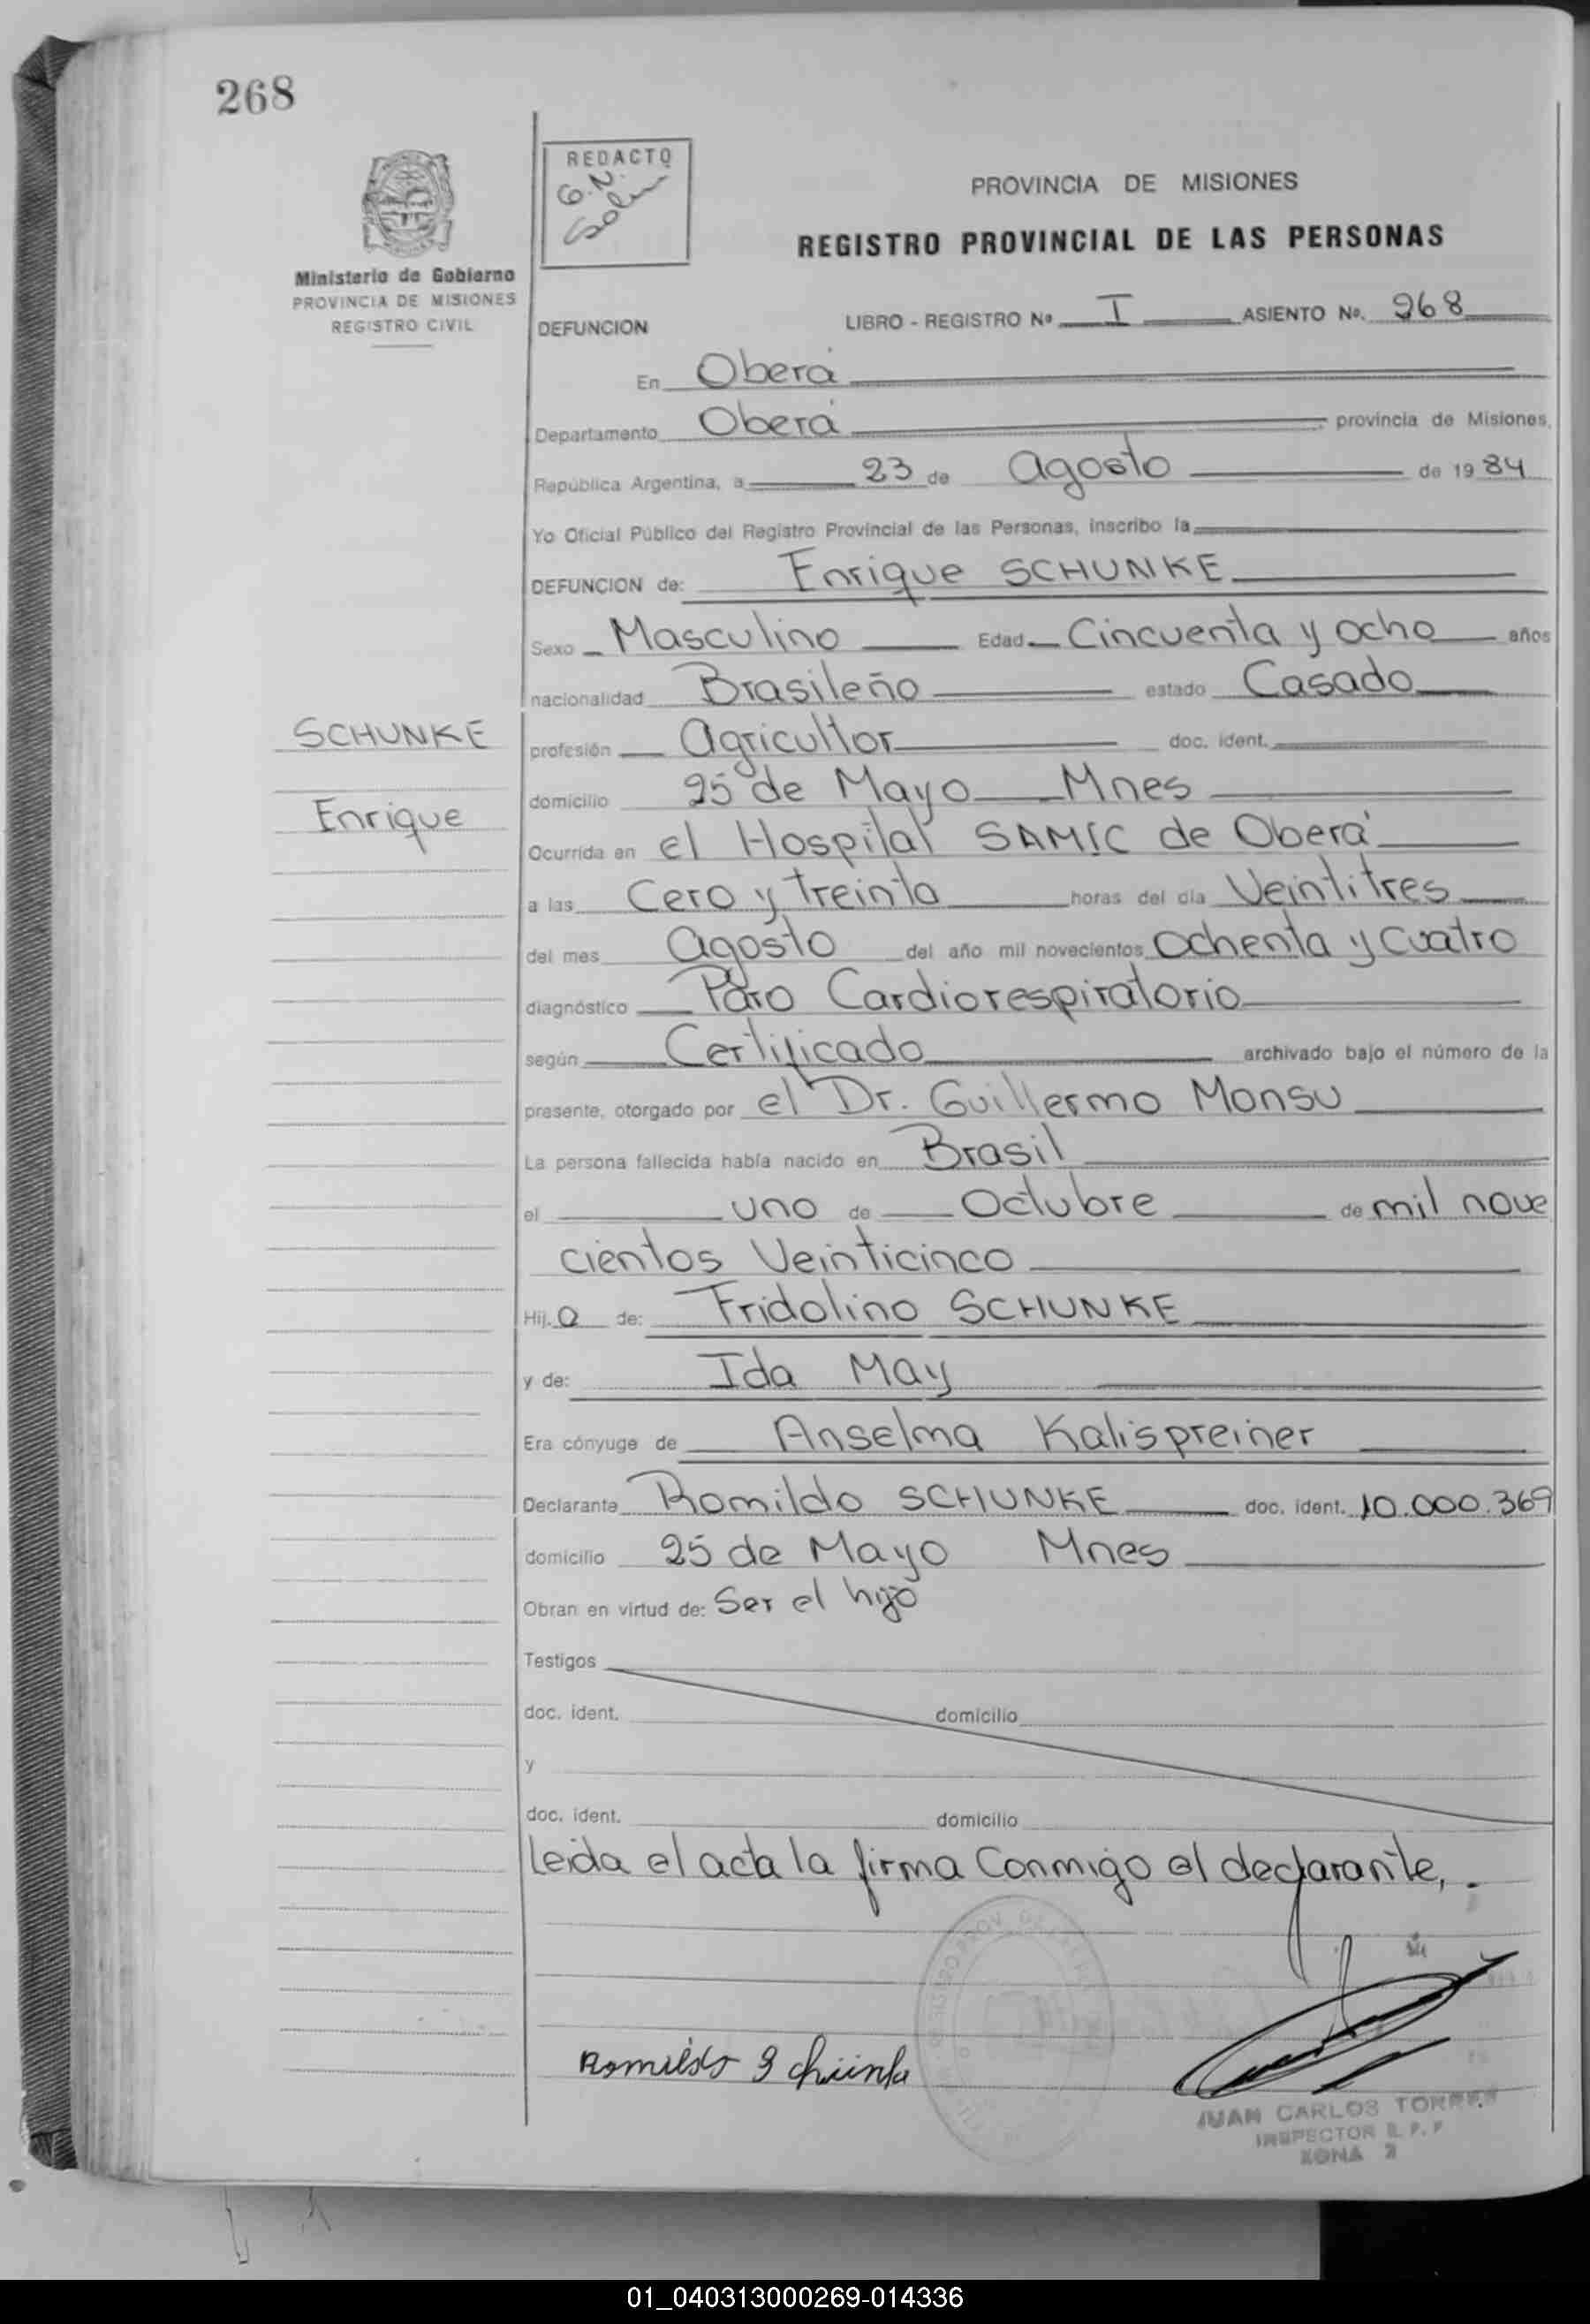 268
REDACTO
G.N.
Ministerio de Gobierno
PROVINCIA DE MISIONES
REGISTRO CIVIL
PROVINCIA DE MISIONES
REGISTRO PROVINCIAL DE LAS PERSONAS
DEFUNCION LIBRO - REGISTRO Nº I ASIENTO No. 268
En Oberá
Departamento Oberá provincia de Misiones,
República Argentina, a 23 de Agosto de 19 84
Yo Oficial Público del Registro Provincial de las Personas, inscribo la
DEFUNCION de: Enrique SCHUNKE
Sexo Masculino Edad Cincuenta y ocho años
nacionalidad Brasileño estado Casado
SCHUNKE
Enrique
profesión Agricultor doc. ident.
domicilio 25 de Mayo Mnes
Ocurrida en el Hospital SAMIC de Oberá
a las Cero y treinta horas del día Veintitres
del mes Agosto del año mil novecientos Ochenta y Cuatro
diagnóstico Paro Cardiorespiratorio
según Certificado archivado bajo el número de la
presente, otorgado por el Dr. Guillermo Monsu
La persona fallecida había nacido en Brasil
el uno de Octubre de mil nove
cientos Veinticinco
Hij.o de: Fridolino SCHUNKE
y de: Ida May
Era cónyuge de Anselma Kalispreiner
Declarante Romildo SCHUNKE doc. ident. 10.000.369
domicilio 25 de Mayo Mnes
Obran en virtud de: Ser el hijo
Testigos
doc. ident. domicilio
y
doc. ident. domicilio
Leida el acta la firma Conmigo el declarante,.
JUAN CARLOS TORRES
INSPECTOR R. P. P
ZONA 2
01_040313000269-014336